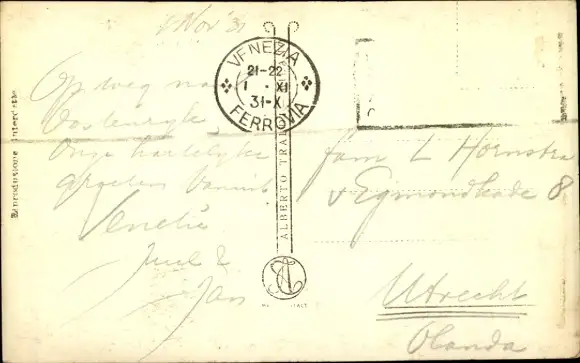 1 Nov '31
Op weg naar
Oostenrijk
Onze hartelijke
groeten vanuit
Venetië
Juul &
Jan
VENEZIA
21-22
1 · XI
31-X
FERROVIA
Riproduzione interdetta
ALBERTO TRA
ITALY
fam L Hornstra
v Egmondkade 8
Utrecht
Olanda